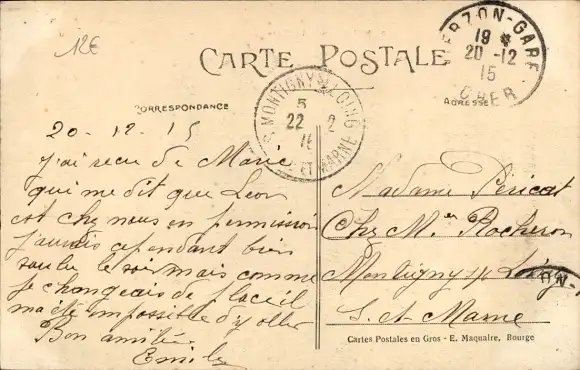 12€
CARTE POSTALE
VIERZON-GARE
19 *
20-12
15
CHER
MONTIGNY S/ LOING
5
22 2
ET MARNE
CORRESPONDANCE
ADRESSE
20-12-15
J'ai recu de Marie
qui me dit que Leon
est chez nous en permission
J'aurais cependant bien
voulu le voir mais comme
je changeais de place il
m'a été impossible d'y aller
Bon amitié
Emile
Madame Péricat
Chez Mr Rocheron
Montigny s/ Loing
S. et Marne
Cartes Postales en Gros - E. Maquaire, Bourge